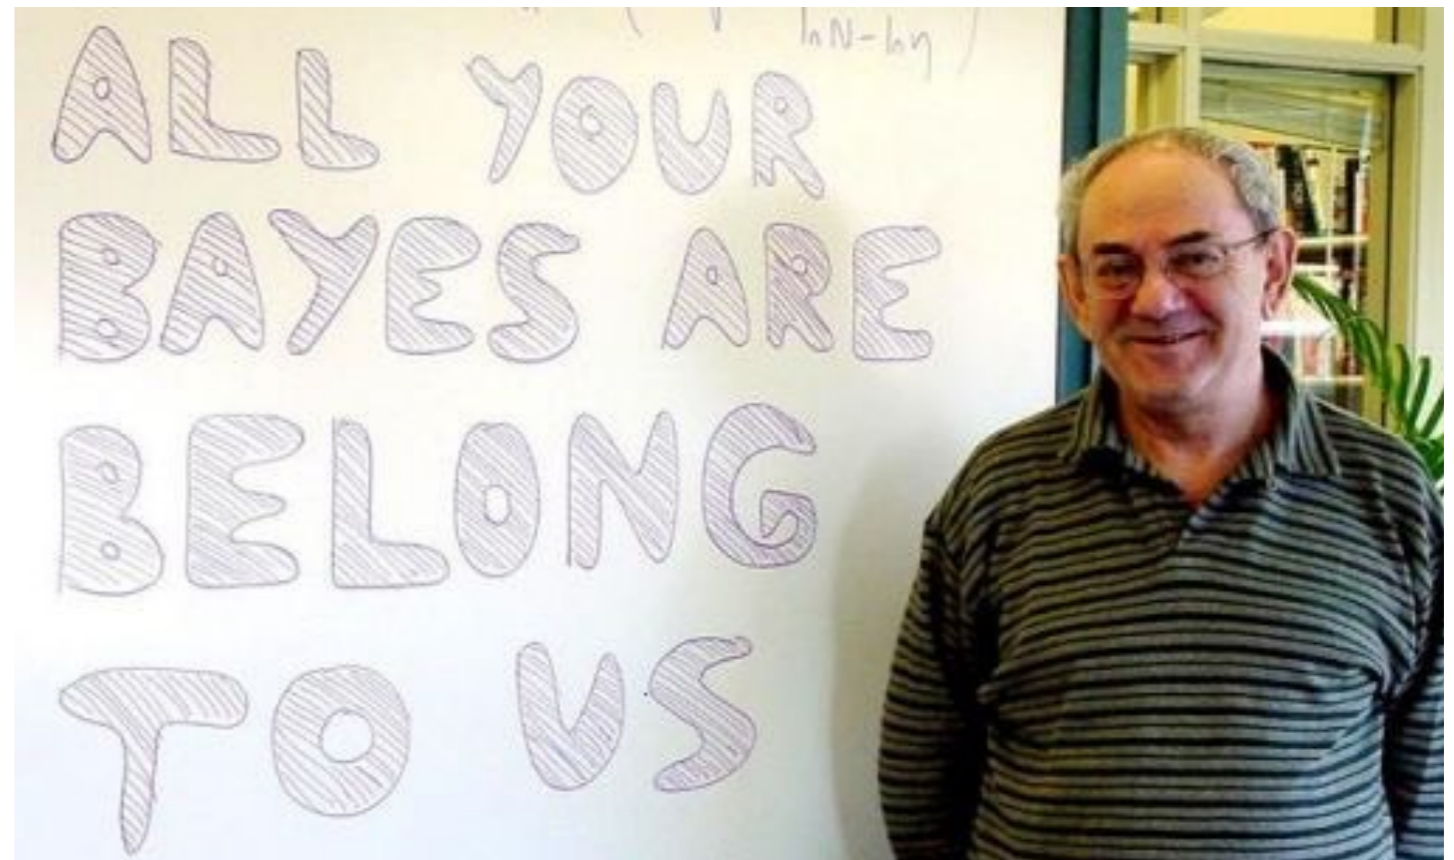 lnN-lny )
ALL YOUR
BAYES ARE
BELONG
TO US